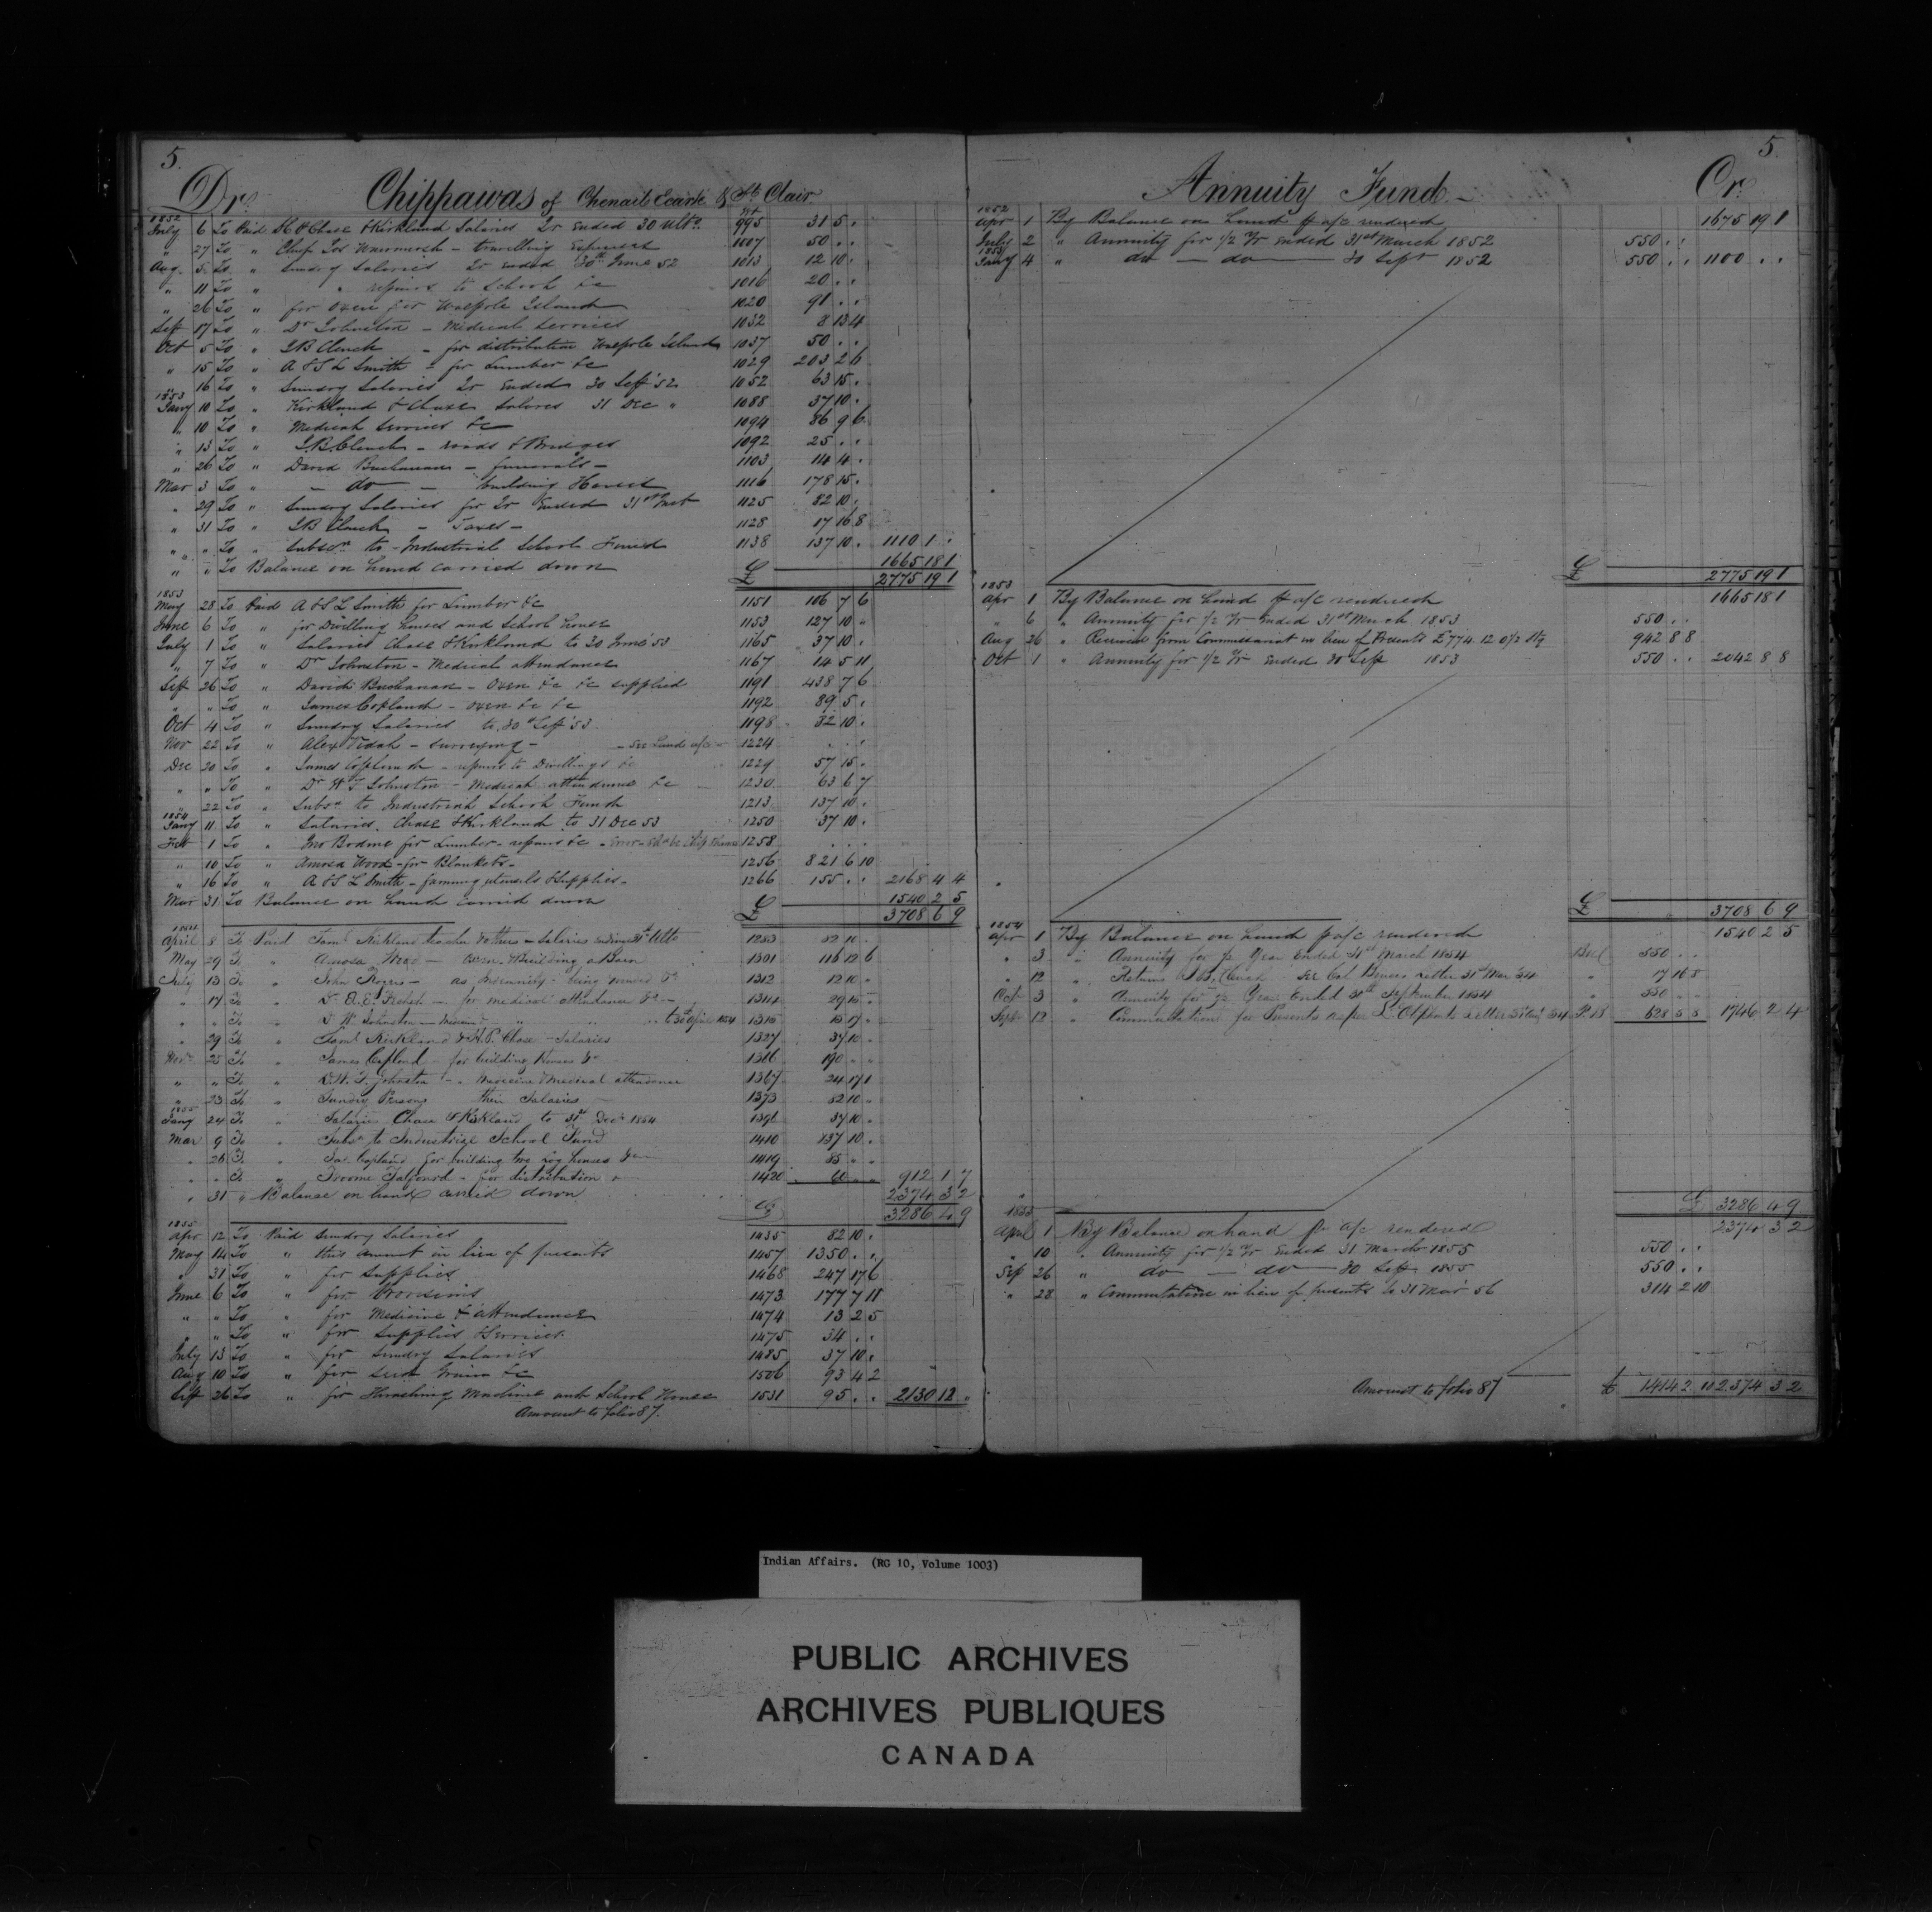 5.
Dr. Chippawas of Chenail Ecarté & St Clair
1852
July 6 To Paid H P Chase & Kirkland Salaries Qr Ended 30 Ulto. 995 31 5 .
" 27 To " Chief Jos Wawanosh - travelling Expenses 1007 50 . .
Aug. 5 To " Sundry Salaries Qr ended 30th June 52 1013 12 10 .
" 11 To " " repairs to School &c 1016 20 . .
" 26 To " for Oxen for Walpole Island 1020 91 . .
Sept 17 To " Dr Johnston - Medical Services 1032 8 13 4
Oct 5 To " J B Clench - for distribution Walpole Island 1037 50 . .
" 15 To " A & S L Smith - for Lumber &c 1029 203 2 6
" 16 To " Sundry Salaries Qr Ended 30 Sept '52 1052 63 15 .
1853
Jany 10 To " Kirkland & Chase Salaries 31 Dec " 1088 37 10 .
" 10 To " Medical Services &c 1094 36 9 6
" 13 To " J.B. Clench - roads & Bridges 1092 25 . .
" 26 To " David Buchanan - funerals - 1103 14 4 .
Mar 3 To " - do - building Houses 1116 178 15 .
" 29 To " Sundry Salaries for Qr Ended 31st Inst 1125 82 10 .
" 31 To " J B Clench - Taxes - 1128 17 16 8
" " To " Subscn to Industrial School Fund 1138 137 10 . 1110 1 .
" " To Balance on hand carried down 1665 18 1
£ 2775 19 1
1853
May 28 To Paid A & S L Smith for Lumber &c 1151 106 7 6
June 6 To " for Dwelling houses and School house 1153 127 10 "
July 1 To " Salaries Chase & Kirkland to 30 June '53 1165 37 10 .
" 7 To " Dr Johnston - Medical attendance 1167 14 5 11
Sept 26 To " David Buchanan - Oxen &c &c supplied 1191 438 7 6
" " To " James Copland - oxen &c &c 1192 89 5 .
Oct 4 To " Sundry Salaries to 30th Sept '53 1198 82 10 .
Nov 22 To " Alex Vidal - surveying - - See Land a/c - 1224 . . .
Dec 20 To " James Copland - repairs to Dwellings &c 1229 57 15 .
" " To " Dr W J Johnston - Medical attendance &c 1230 63 6 7
" 22 To " Subsn to Industrial School Fund 1213 137 10 .
1854
Jany 11 To " Salaries Chase & Kirkland to 31 Dec 53 1250 37 10 .
Feb 1 To " Jno Bodine for Lumber - repairs &c - Error - 1258 . . .
" 10 To " Amosa Wood - for Blankets - 1256 821 6 10
" 16 To " A & S L Smith - farming utensils & Supplies - 1266 155 . . 2168 4 4
Mar 31 To Balance on hand carried down 1540 2 5
£ 3708 6 9
1854
April 8 To Paid Saml Kirkland teacher & others - Salaries ending 31st Ulto 1283 82 10 .
May 29 To " Amosa Wood - Building a Barn 1301 116 12 6
July 13 To " John Rogers - as Indemnity - being removed &c 1312 12 10 "
" 17 To " D. A. E. - for medical attendance &c - 1314 29 15 -
" " To " D. W. Johnston - Medicines " " " to 30th April 1854 1315 15 17 "
" 29 To " Saml Kirkland & H. P. Chase - Salaries 1327 37 10 "
Novr 25 To " James Copland - for building Houses &c 1366 190 " "
" " To " D. W. J. Johnston - Medicine & medical attendance 1367 24 17 1
" 23 To " Sundry Persons their Salaries - 1373 82 10 "
1855
Jany 24 To " Salaries Chase & Kirkland to 31st Decr 1854 1396 37 10 "
Mar 9 To " Subsn to Industrial School Fund 1410 137 10 .
" 26 To " Jas Copland for building two Log houses &c 1419 85 " "
" " To " Froome Talfourd - for distribution 1420 60 . . 912 1 7
" 31 " Balance on hand carried down 2374 3 2
£ 3286 4 9
1855
Apr 12 To Paid Sundry Salaries 1435 82 10 .
May 14 To " this amount in lieu of presents 1457 1350 . .
" 31 To " for Supplies 1468 247 17 6
June 6 To " for Provisions 1473 177 7 11
" " To " for Medicine & attendance 1474 13 2 5
" " To " for Supplies & Services 1475 34 . .
July 13 To " for Sundry Salaries 1485 37 10 .
Aug 10 To " for Seed Grain &c 1506 93 4 2
Sept 26 To " for Thrashing Machine and School House 1531 95 . . 2130 12 "
Amount to folio 87.
5.
Annuity Fund. - Cr.
1852
Apr 1 By Balance on hand pr a/c rendered 1675 19 1
July 2 " Annuity for 1/2 Yr Ended 31st March 1852 550 . .
1853
Jany 4 " do - do - 30 Sept 1852 550 . . 1100 . .
£ 2775 19 1
1853
Apr 1 By Balance on hand pr a/c rendered 1665 18 1
" 6 " Annuity for 1/2 Yr Ended 31st March 1853 550 . .
Aug 26 " Received from Commissariat in lieu of Presents £774.12.0 1/2 Stg 942 8 8
Oct 1 " Annuity for 1/2 Yr Ended 30 Sept 1853 550 . . 2042 8 8
£ 3708 6 9
1854
Apr 1 By Balance on hand pr a/c rendered 1540 2 5
" 3 " Annuity for 1/2 Year Ended 31st March 1854 550 . .
" 12 " Returned J.B. Clench per Col Bruces Letter 31st Mar '54 17 16 8
Oct 3 " Annuity for 1/2 Year Ended 30th September 1854 550 " "
Sepr 12 " Commutation for Presents as per L. Oliphants Letter 54 P.18 628 5 8 1746 2 4
£ 3286 4 9
1855
April 1 By Balance on hand pr a/c rendered 2374 3 2
" 10 " Annuity for 1/2 Yr Ended 31 March 1855 550 . .
Sep 26 " do - do - 30 Sept 1855 550 . .
" 28 " Commutation in lieu of presents to 31 Mar '56 314 2 10
Amount to folio 87 £ 1414 2 10 2374 3 2
Indian Affairs. (RG 10, Volume 1003)
PUBLIC ARCHIVES
ARCHIVES PUBLIQUES
CANADA